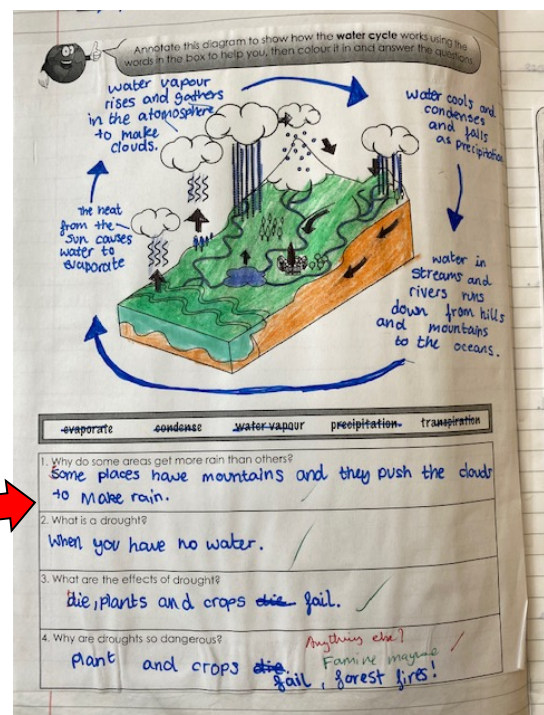 Annotate this diagram to show how the water cycle works using the
words in the box to help you, then colour it in and answer the questions
water vapour
rises and gathers
in the atomosphere
to make
clouds.
water cools and
condenses
and falls
as precipitation
The heat
from the
sun causes
water to
evaporate
water in
streams and
rivers runs
down from hills
and mountains
to the oceans.
evaporate condense water vapour precipitation transpiration
1. Why do some areas get more rain than others?
Some places have mountains and they push the clouds
to make rain.
2. What is a drought?
When you have no water.
3. What are the effects of drought?
die, plants and crops die fail.
4. Why are droughts so dangerous?
Anything else?
Famine maybe
Plant and crops die.
fail, forest fires!